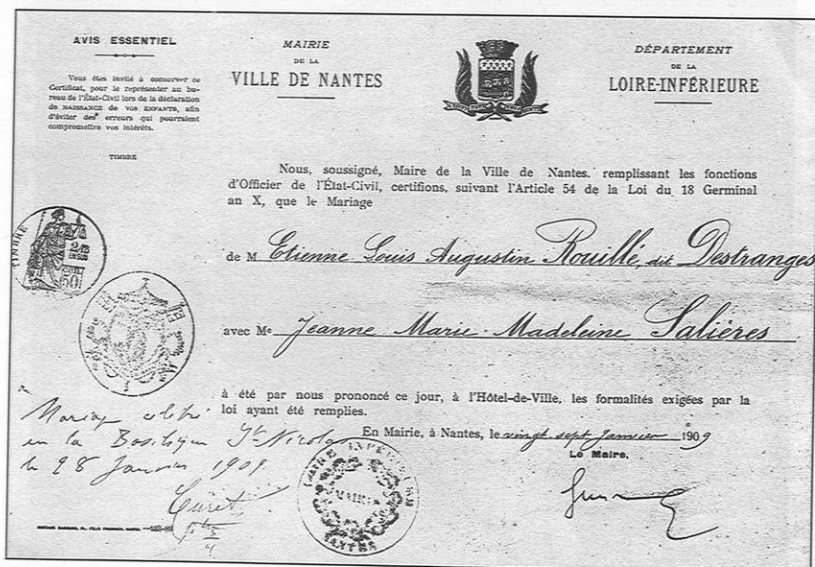 AVIS ESSENTIEL
Vous êtes invité à conserver ce
Certificat, pour le représenter au bu-
reau de l'État-Civil lors de la déclaration
de NAISSANCE de vos ENFANTS, afin
d'éviter des erreurs qui pourraient
compromettre vos intérêts.
TIMBRE
MAIRIE
DE LA
VILLE DE NANTES
DÉPARTEMENT
DE LA
LOIRE-INFÉRIEURE
Nous, soussigné, Maire de la Ville de Nantes. remplissant les fonctions
d'Officier de l'État-Civil, certifions, suivant l'Article 54 de la Loi du 18 Germinal
an X, que le Mariage
de M Etienne Louis Augustin Rouillé, dit Destranges
avec Me Jeanne Marie-Madeleine Salières
à été par nous prononcé ce jour, à l'Hôtel-de-Ville, les formalités exigées par la
loi ayant été remplies.
En Mairie, à Nantes, le vingt sept Janvier 1909
Le Maire,
TIMBRE
2/10
EN SUS
50
Mariage célébré
en la Basilique St Nicolas
le 28 Janvier 1909
LOIRE INFÉRIEURE
MAIRIE
NANTES